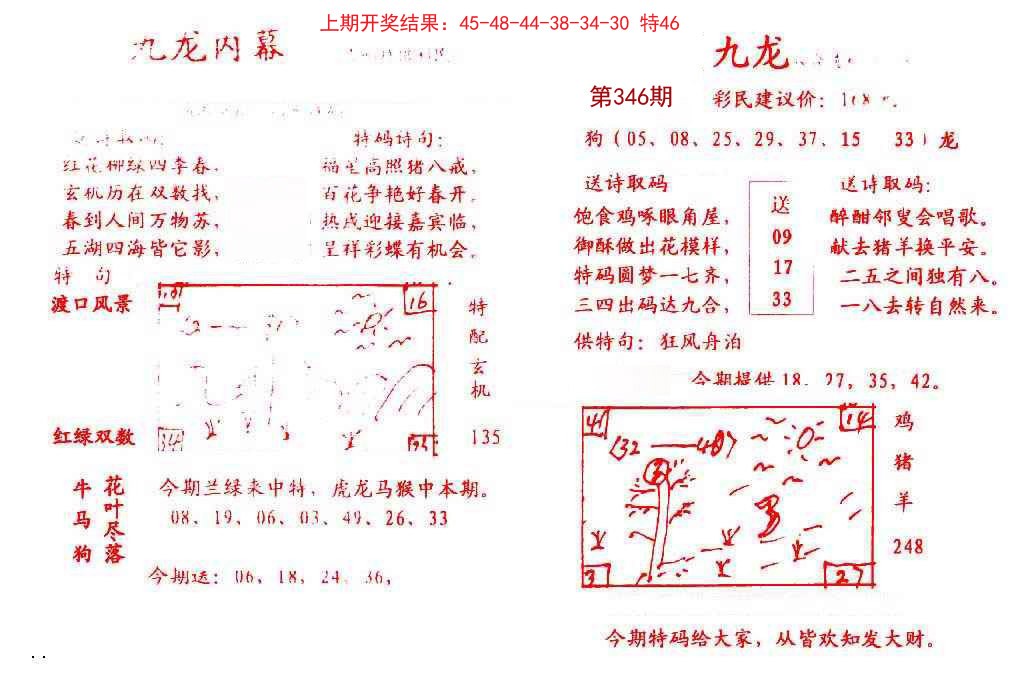 上期开奖结果：45-48-44-38-34-30 特46
九龙内幕
特码诗句：
红花柳绿四季春，
玄机历在双数找，
春到人间万物苏，
五湖四海皆它影，
福星高照猪八戒，
百花争艳好春开，
热戌迎接嘉宾临，
呈祥彩蝶有机会。
特 句
渡口风景
16
特配玄机
红绿双数
135
牛马狗
花叶尽落
今期兰绿来中特，虎龙马猴中本期。
08、19、06、03、49、26、33
今期送：06、18、24、36，
九龙
第346期
彩民建议价：
狗（05、08、25、29、37、15 33）龙
送诗取码
饱食鸡啄眼角屋，
御酥做出花模样，
特码圆梦一七齐，
三四出码达九合，
送
09
17
33
送诗取码：
醉酣邻叟会唱歌。
献去猪羊换平安。
二五之间独有八。
一八去转自然来。
供特句：狂风舟泊
今期提供 18、27，35，42。
41
14
32
27
鸡
猪
羊
248
今期特码给大家，从皆欢知发大财。